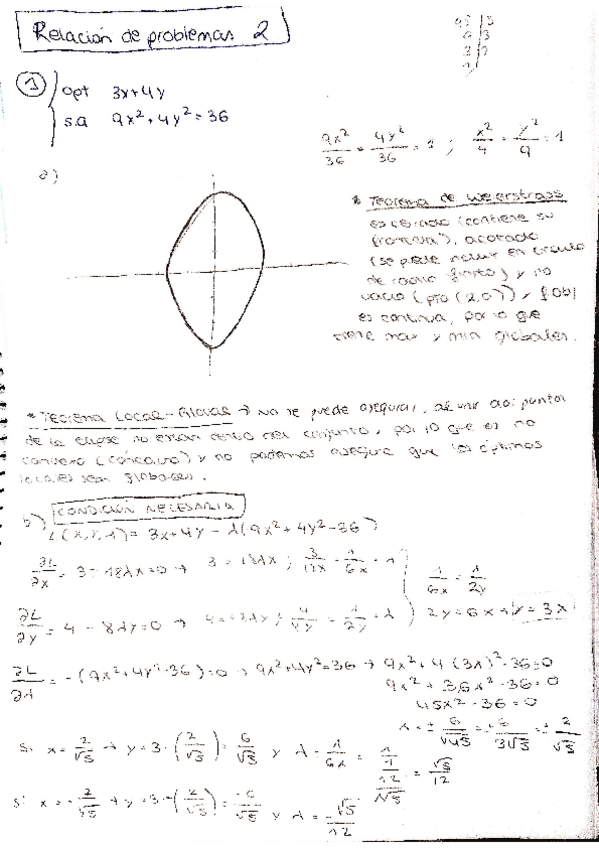 Relación de problemas 2
45 | 3
3
1
① opt 3x+4y
s.a 9x² + 4y² = 36
9x²/36 + 4y²/36 = 1 ; x²/4 + y²/9 = 1
a)
* Teorema de Weierstrass
es cerrado (contiene su
frontera), acotado
(se puede incluir en círculo
de radio finito) y no
vacío (pto (2,0)), f. obj
es continua, por lo que
tiene max y min globales.
* Teorema Local-Global → No se puede asegurar, al unir dos puntos
de la elipse no están dentro del conjunto, por lo que es no
convexo (cóncavo) y no podemos asegurar que los óptimos
locales sean globales.
b) CONDICIÓN NECESARIA
L(x,y,λ) = 3x+4y - λ(9x²+4y²-36)
∂L/∂x = 3 - 18λx = 0 → 3 = 18λx ; 1/6x = λ
1/6x = 1/2y
∂L/∂y = 4 - 8λy = 0 → 1/2y = λ
2y = 6x → y = 3x
∂L/∂λ = -(9x²+4y²-36) = 0 → 9x²+4y² = 36 → 9x²+4(3x)²-36=0
9x² + 36x² - 36 = 0
45x² - 36 = 0
x = ± 6/√45 = ± 6/3√5 = ± 2/√5
si x = 2/√5 → y = 3·(2/√5) = 6/√5 y λ = 1/6x = 1/(12/√5) = √5/12
si x = -2/√5 → y = 3·-(2/√5) = -6/√5 y λ = -√5/12